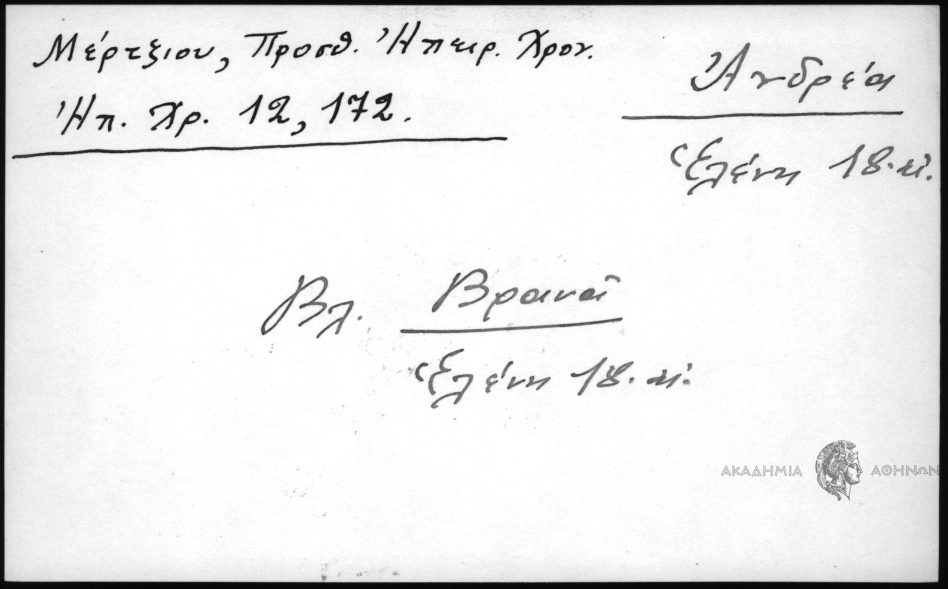 Μέρτζιου, Προσθ. Ἠπειρ. Χρον.
Ἠπ. Χρ. 12, 172.
Ἀνδρέα
Ἑλένη 18. αἰ.
Βλ. Βρανᾶ
Ἑλένη 18. αἰ.
ΑΚΑΔΗΜΙΑ ΑΘΗΝΩΝ